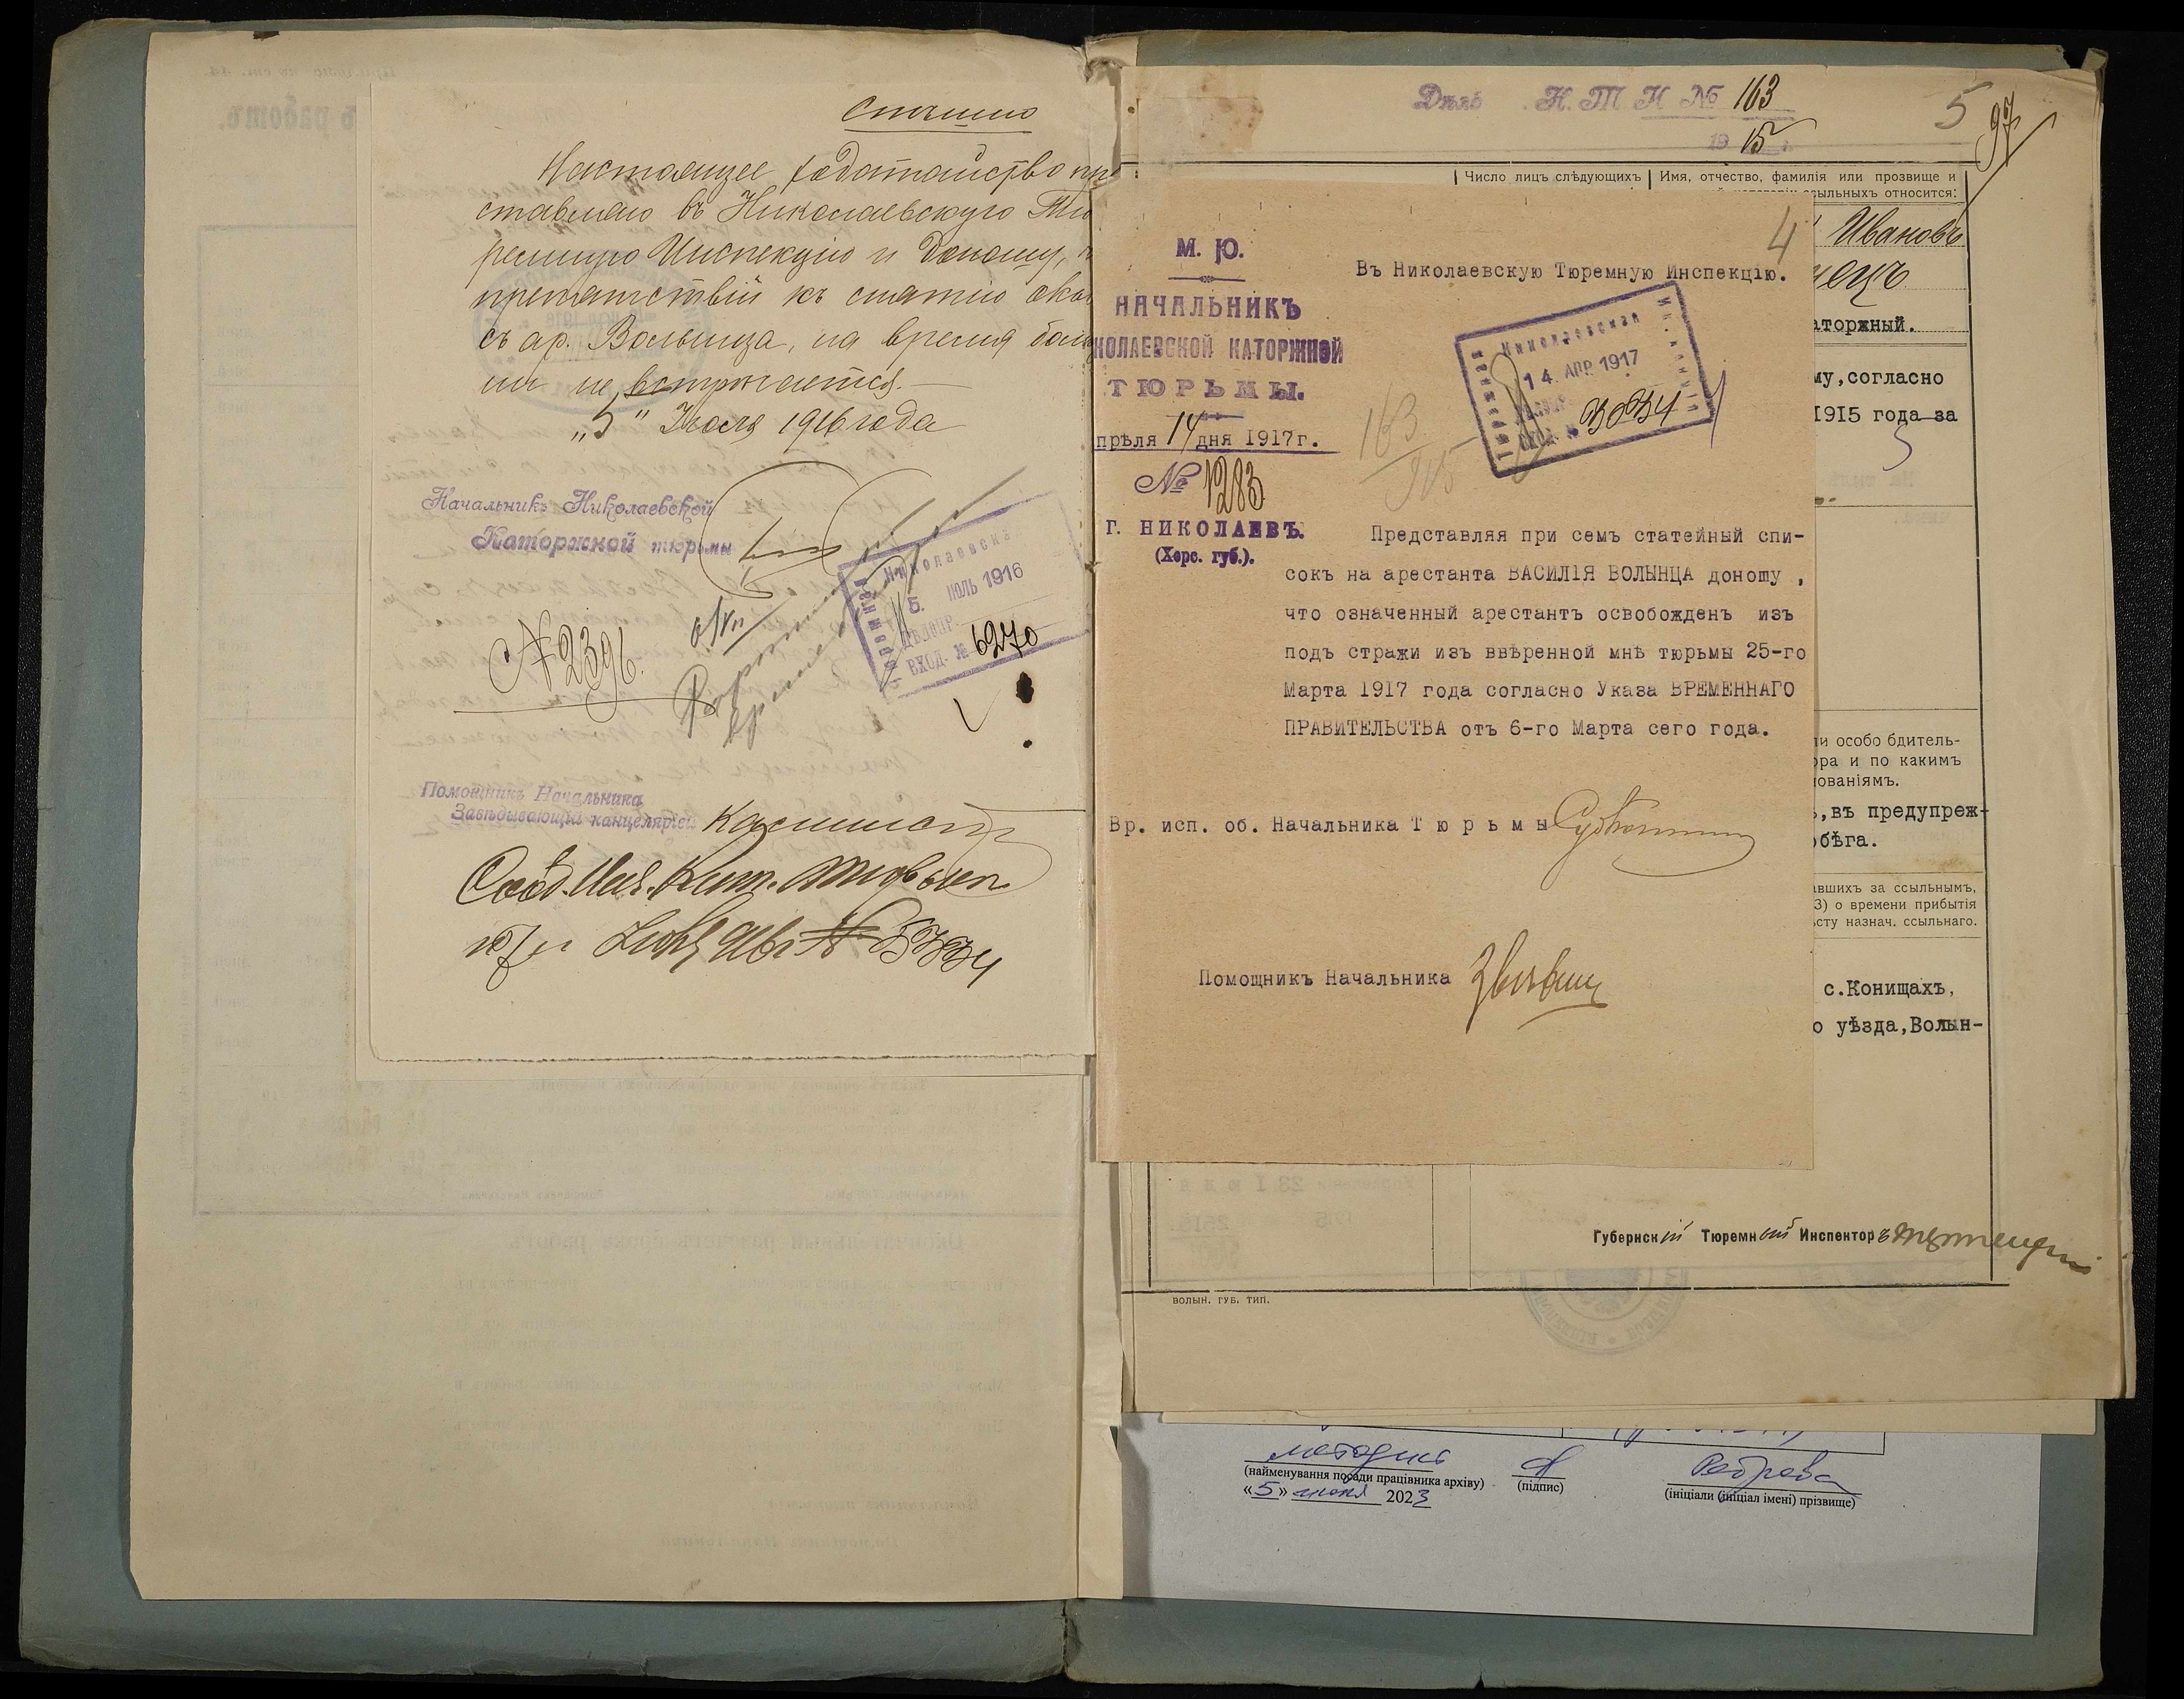 Спѣшно
Настоящее ходатайство пре
ставляю въ Николаевскую Тю
ремную Инспекцію и доношу,
препятствій къ снятію око
съ ар. Волынца, на время болѣз
ни не встрѣчается.—
„5" Іюля 1916 года
Начальникъ Николаевской
Каторжной тюрьмы
Николаевска
Тюремная
5. ІЮЛЬ 1916
ВХОД. № 6270
№ 2396.
Помощникъ Начальника
Завѣдывающій канцеляріей
Дѣло Н. Т. И № 163
19 15 г.
5
97
Число лицъ слѣдующихъ
Имя, отчество, фамилія или прозвище и
ссыльныхъ относится:
Ивановъ
нецъ
аторжный.
му, согласно
1915 года за
4
М. Ю.
НАЧАЛЬНИКЪ
КОЛАЕВСКОЙ КАТОРЖНОЙ
ТЮРЬМЫ.
прѣля 14 дня 1917г.
№ 1283
г. НИКОЛАЕВЪ.
(Херс. губ.).
Въ Николаевскую Тюремную Инспекцію.
Николаевская
14. АПР. 1917
ВХОД. № 3034
163
915
Представляя при семъ статейный спи-
сокъ на арестанта ВАСИЛІЯ ВОЛЫНЦА доношу ,
что означенный арестантъ освобожденъ изъ
подъ стражи изъ ввѣренной мнѣ тюрьмы 25-го
Марта 1917 года согласно Указа ВРЕМЕННАГО
ПРАВИТЕЛЬСТВА отъ 6-го Марта сего года.
Вр. исп. об. Начальника Тюрьмы
Помощникъ Начальника
ли особо бдитель-
ора и по какимъ
нованіямъ.
ь,въ предупреж-
обѣга.
авшихъ за ссыльнымъ,
3) о времени прибытія
ѣсту назнач. ссыльнаго.
с.Конищахъ,
о уѣзда,Волын-
Губернскій Тюремный Инспекторъ
ВОЛЫН. ГУБ. ТИП.
методист
(найменування посади працівника архіву)
(підпис)
Реброва
(ініціали (ініціал імені) прізвище)
«5» июня 2023